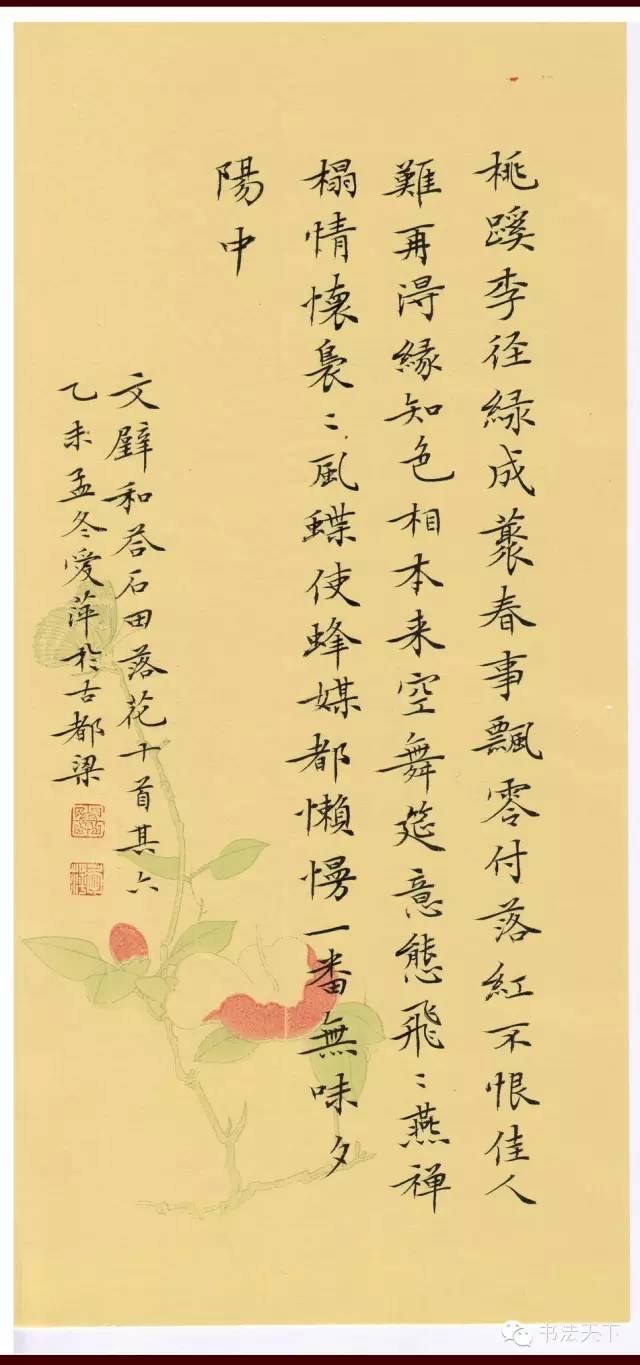 桃蹊李径緑成藂春事飄零付落紅不恨佳人
難再淂緣知色相本来空舞筵意態飛〻燕禅
榻情懷裊〻風蝶使蜂媒都懶慢一番無味夕
陽中
文璧和荅石田落花十首其六
乙未孟冬愛萍於古都梁
书法天下